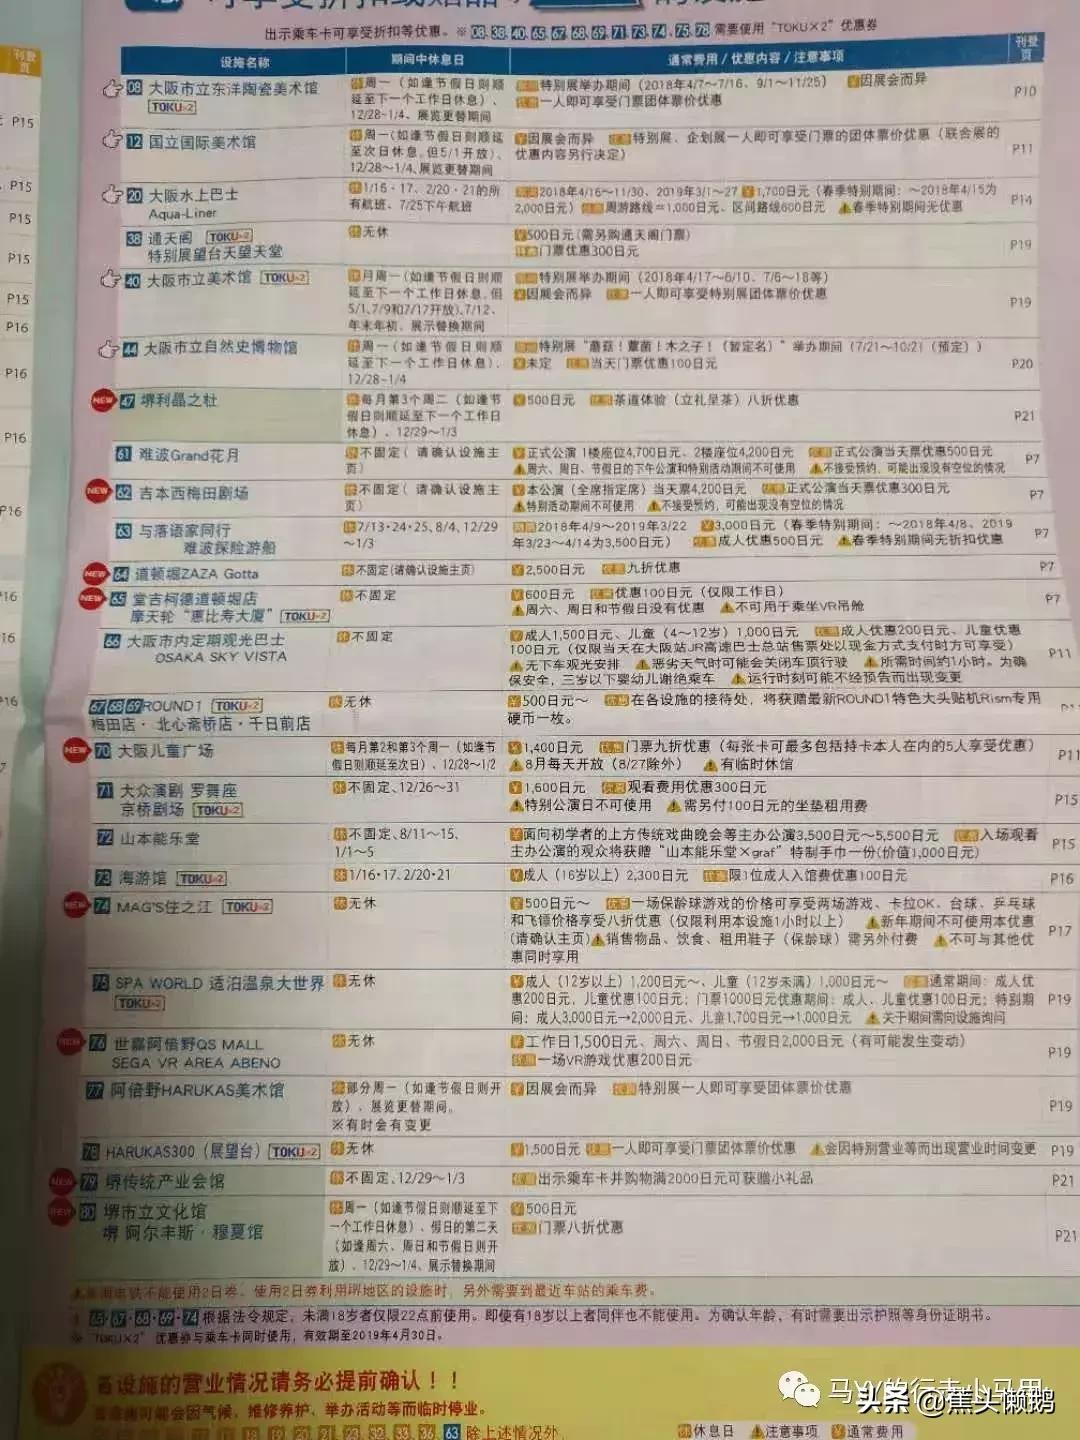 刊登
页
P15
P15
P15
P15
P15
P16
P16
P16
P16
出示乘车卡可享受折扣等优惠。※08、38、40、65、67、68、69、71、73、74、75、78需要使用“TOKU×2”优惠券
设施名称 期间中休息日 通常费用/优惠内容/注意事项 刊登页
08 大阪市立东洋陶瓷美术馆 TOKU×2
休周一（如逢节假日则顺延至下一个工作日休息）、12/28~1/4、展览更替期间
特别展举办期间（2018年4/7～7/16、9/1～11/25） ¥因展会而异
优惠一人即可享受门票团体票价优惠
P10
12 国立国际美术馆
休周一（如逢节假日则顺延至次日休息，但5/1开放）、12/28～1/4、展览更替期间
¥因展会而异 优惠特别展、企划展一人即可享受门票的团体票价优惠（联合展的优惠内容另行决定）
P11
20 大阪水上巴士
Aqua-Liner
休1/16·17、2/20·21的所有航班、7/25下午航班
期间2018年4/16～11/30、2019年3/1～27 ¥1,700日元（春季特别期间：～2018年4/15为2,000日元）优惠周游路线=1,000日元、区间路线600日元 ⚠春季特别期间无优惠
P14
38 通天阁 TOKU×2
特别展望台天望天堂
休无休
¥500日元(需另购通天阁门票)
优惠门票优惠300日元
P19
40 大阪市立美术馆 TOKU×2
休月周一（如逢节假日则顺延至下一个工作日休息，但5/1、7/9和7/17开放）、7/12、年末年初、展示替换期间
期间特别展举办期间（2018年4/17～6/10、7/6～18等）
¥因展会而异 优惠一人即可享受特别展团体票价优惠
P19
44 大阪市立自然史博物馆
休周一（如逢节假日则顺延至下一个工作日休息）、12/28~1/4
期间特别展“蘑菇！蕈菌！木之子！（暂定名）”举办期间（7/21～10/21（预定））
¥未定 优惠当天门票优惠100日元
P20
NEW 47 堺利晶之杜
休每月第3个周二（如逢节假日则顺延至下一个工作日休息）、12/29～1/3
¥500日元 优惠茶道体验（立礼呈茶）八折优惠
P21
61 难波Grand花月
休不固定（请确认设施主页）
¥正式公演 1楼座位4,700日元、2楼座位4,200日元 优惠正式公演当天票优惠500日元
⚠周六、周日、节假日的下午公演和特别活动期间不可使用 ⚠不接受预约，可能出现没有空位的情况
P7
NEW 62 吉本西梅田剧场
休不固定（请确认设施主页）
¥本公演（全席指定席）当天票4,200日元 优惠正式公演当天票优惠300日元
⚠特别活动期间不可使用 ⚠不接受预约，可能出现没有空位的情况
P7
63 与落语家同行
难波探险游船
休7/13·24·25、8/4、12/29～1/3
期间2018年4/9～2019年3/22 ¥3,000日元（春季特别期间：～2018年4/8、2019年3/23～4/14为3,500日元） 优惠成人优惠500日元 ⚠春季特别期间无折扣优惠
P7
NEW 64 道顿堀ZAZA Gotta
休不固定(请确认设施主页)
¥2,500日元 优惠九折优惠
P7
NEW 65 堂吉柯德道顿堀店
摩天轮“惠比寿大厦” TOKU×2
休不固定
¥600日元 优惠优惠100日元（仅限工作日）
⚠周六、周日和节假日没有优惠 ⚠不可用于乘坐VR吊舱
P7
66 大阪市内定期观光巴士
OSAKA SKY VISTA
休不固定
¥成人1,500日元、儿童（4～12岁）1,000日元 优惠成人优惠200日元、儿童优惠100日元（仅限当天在大阪站JR高速巴士总站售票处以现金方式支付时方可享受）
⚠无下车观光安排 ⚠恶劣天气时可能会关闭车顶行驶 ⚠所需时间约1小时。为确保安全，三岁以下婴幼儿谢绝乘车 ⚠运行时刻可能不经预告而出现变更
P11
67 68 69 ROUND1 TOKU×2
梅田店·北心斋桥店·千日前店
休无休
¥500日元～ 优惠在各设施的接待处，将获赠最新ROUND1特色大头贴机Rism专用硬币一枚。
NEW 70 大阪儿童广场
休每月第2和第3个周一（如逢节假日则顺延至次日）、12/28～1/2
¥1,400日元 优惠门票九折优惠（每张卡可最多包括持卡本人在内的5人享受优惠）
⚠8月每天开放（8/27除外） ⚠有临时休馆
P11
71 大众演剧 罗舞座
京桥剧场 TOKU×2
休不固定、12/26～31
¥1,600日元 优惠观看费用优惠300日元
⚠特别公演日不可使用 ⚠需另付100日元的坐垫租用费
P15
72 山本能乐堂
休不固定、8/11～15、1/1～5
¥面向初学者的上方传统戏曲晚会等主办公演3,500日元～5,500日元 优惠入场观看主办公演的观众将获赠“山本能乐堂×graf”特制手巾一份(价值1,000日元)
P15
73 海游馆 TOKU×2
休1/16·17、2/20·21
¥成人（16岁以上）2,300日元 优惠限1位成人入馆费优惠100日元
P16
NEW 74 MAG'S住之江 TOKU×2
休无休
¥500日元～ 优惠一场保龄球游戏的价格可享受两场游戏、卡拉OK、台球、乒乓球和飞镖价格享受八折优惠（仅限利用本设施1小时以上） ⚠新年期间不可使用本优惠(请确认主页)⚠销售物品、饮食、租用鞋子（保龄球）需另外付费 ⚠不可与其他优惠同时享用
P17
75 SPA WORLD 适泊温泉大世界
TOKU×2
休无休
¥成人（12岁以上）1,200日元～、儿童（12岁未满）1,000日元～ 优惠通常期间：成人优惠200日元，儿童优惠100日元；门票1000日元优惠期间：成人、儿童优惠100日元；特别期间：成人3,000日元→2,000日元、儿童1,700日元→1,000日元 ⚠关于期间需向设施询问
P19
NEW 76 世嘉阿倍野QS MALL
SEGA VR AREA ABENO
休无休
¥工作日1,500日元、周六、周日、节假日2,000日元（有可能发生变动）
优惠一场VR游戏优惠200日元
P19
77 阿倍野HARUKAS美术馆
休部分周一（如逢节假日则开放）、展览更替期间。
※有时会有变更
¥因展会而异 优惠特别展一人即可享受团体票价优惠
P19
78 HARUKAS300（展望台） TOKU×2
休无休
¥1,500日元 优惠一人即可享受门票团体票价优惠 ⚠会因特别营业等而出现营业时间变更
P19
NEW 79 堺传统产业会馆
休不固定、12/29～1/3
优惠出示乘车卡并购物满2000日元可获赠小礼品
P21
NEW 80 堺市立文化馆
堺 阿尔丰斯·穆夏馆
休周一（如逢节假日则顺延至下一个工作日休息）、假日的第二天（如逢周六、周日和节假日则开放）、12/29～1/4、展示替换期间
¥500日元
优惠门票八折优惠
P21
不能使用2日券。使用2日券利用堺地区的设施时，另外需要到最近车站的乘车费。
65·67·68·69·74根据法令规定，未满18岁者仅限22点前使用。即使有18岁以上者同伴也不能使用。为确认年龄，有时需要出示护照等身份证明书。
※“TOKU×2”优惠券与乘车卡同时使用，有效期至2019年4月30日。
各设施的营业情况请务必提前确认！！
各设施可能会因气候、维修养护、举办活动等而临时停业。
63 除上述情况外
休休息日 ⚠注意事项 ¥通常费用
头条@蕉头懒鹅